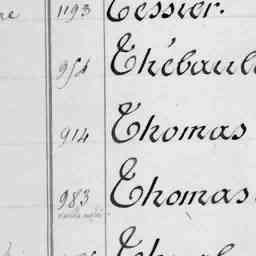 1193 Tessier.
954 Thébault
914 Thomas
983 Thomas